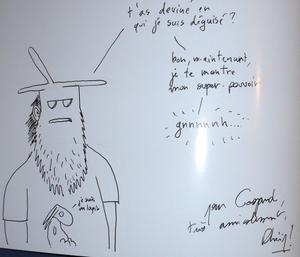 t'as deviné en
qui je suis déguisé ?
bon, maintenant,
je te montre
mon super-pouvoir
gnnnnnh...
je suis
un lapin
pour
très amicalement,